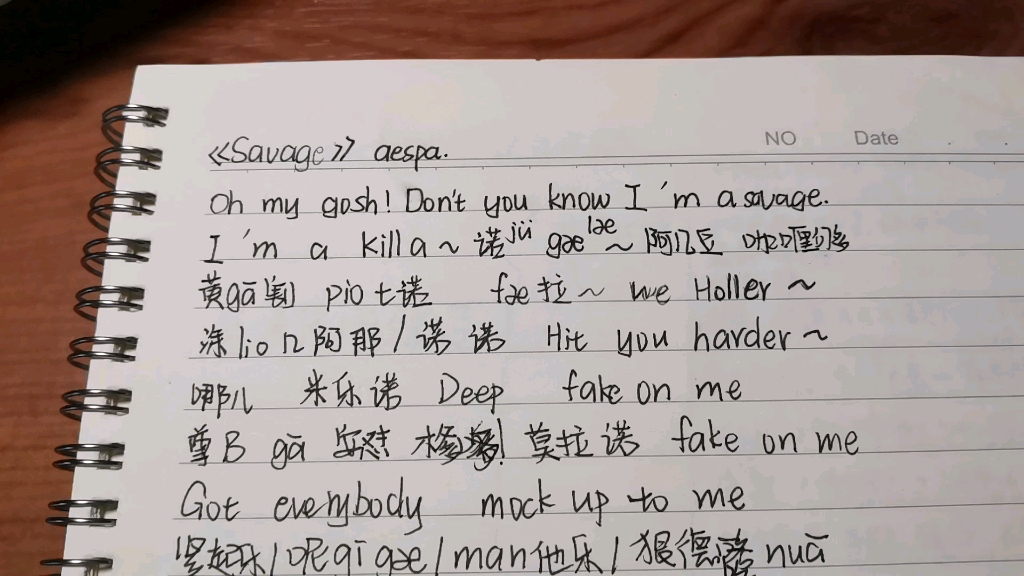 NO Date
《Savage》 aespa.
Oh my gosh! Don't you know I'm a savage.
I'm a killa~ 诺jü gəelae~ 阿几豆
黄gā割 pio 七诺 fəe拉~ we Holler~
涂lio n 阿那/诺诺 Hit you harder~
哪儿 米乐诺 Deep fake on me
尊B gā 莫拉诺 fake on me
Got everybody mock up to me
竖起乐/呢gī gəe/man他乐/狠德 nuā